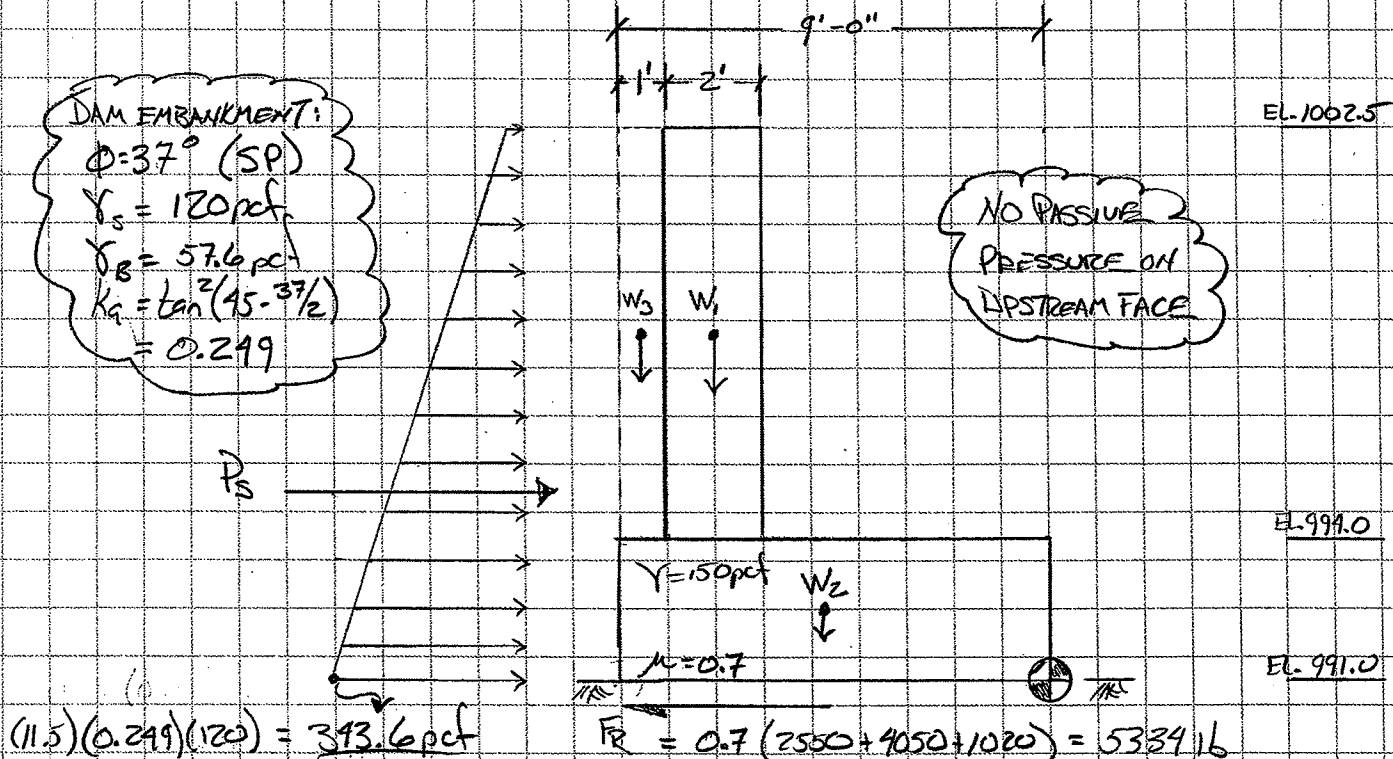 9'-0"
1' 2'
EL. 1002.5
DAM EMBANKMENT:
Ø=37° (SP)
γs = 120pcf
γB = 57.6 pcf
Ka = tan²(45-37/2)
= 0.249
NO PASSIVE
PRESSURE ON
UPSTREAM FACE
W3 W1
Ps
EL. 994.0
γ=150pcf W2
μ=0.7
EL. 991.0
(11.5)(0.249)(120) = 343.6 pcf
FR = 0.7 (2550+4050+1020) = 5334 lb